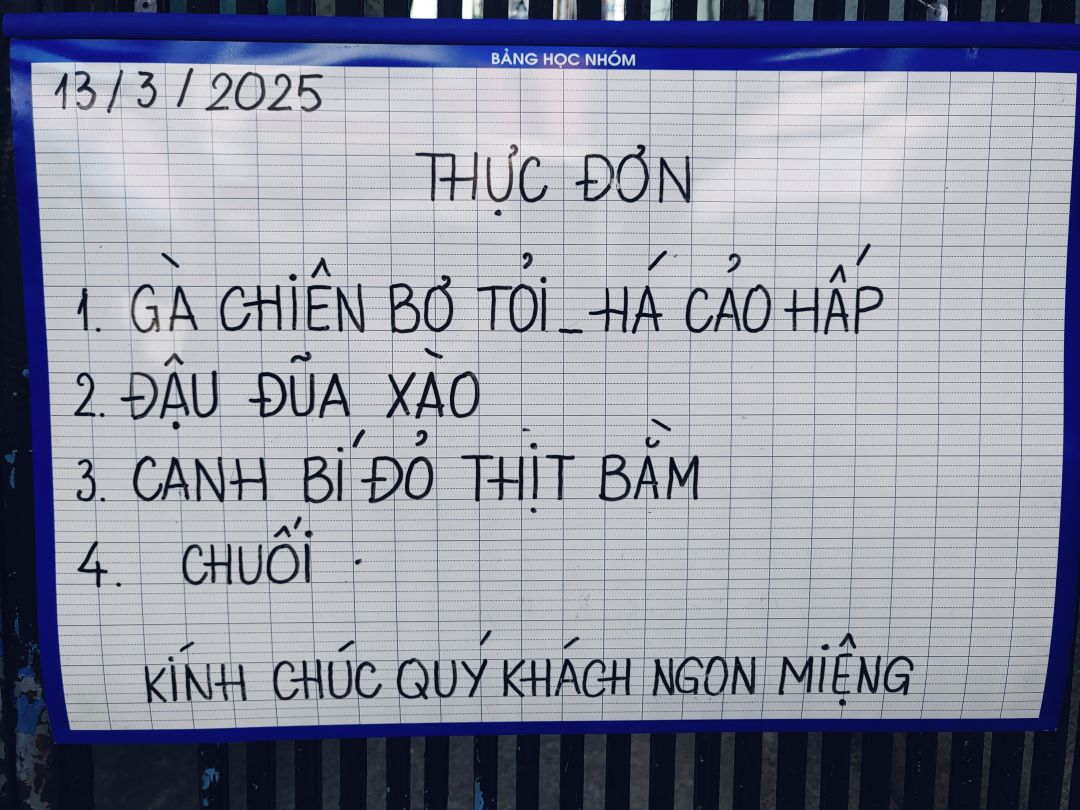 BẢNG HỌC NHÓM
13/3/2025
THỰC ĐƠN
1. GÀ CHIÊN BƠ TỎI_HÁ CẢO HẤP
2. ĐẬU ĐŨA XÀO
3. CANH BÍ ĐỎ THỊT BẰM
4. CHUỐI.
KÍNH CHÚC QUÝ KHÁCH NGON MIỆNG